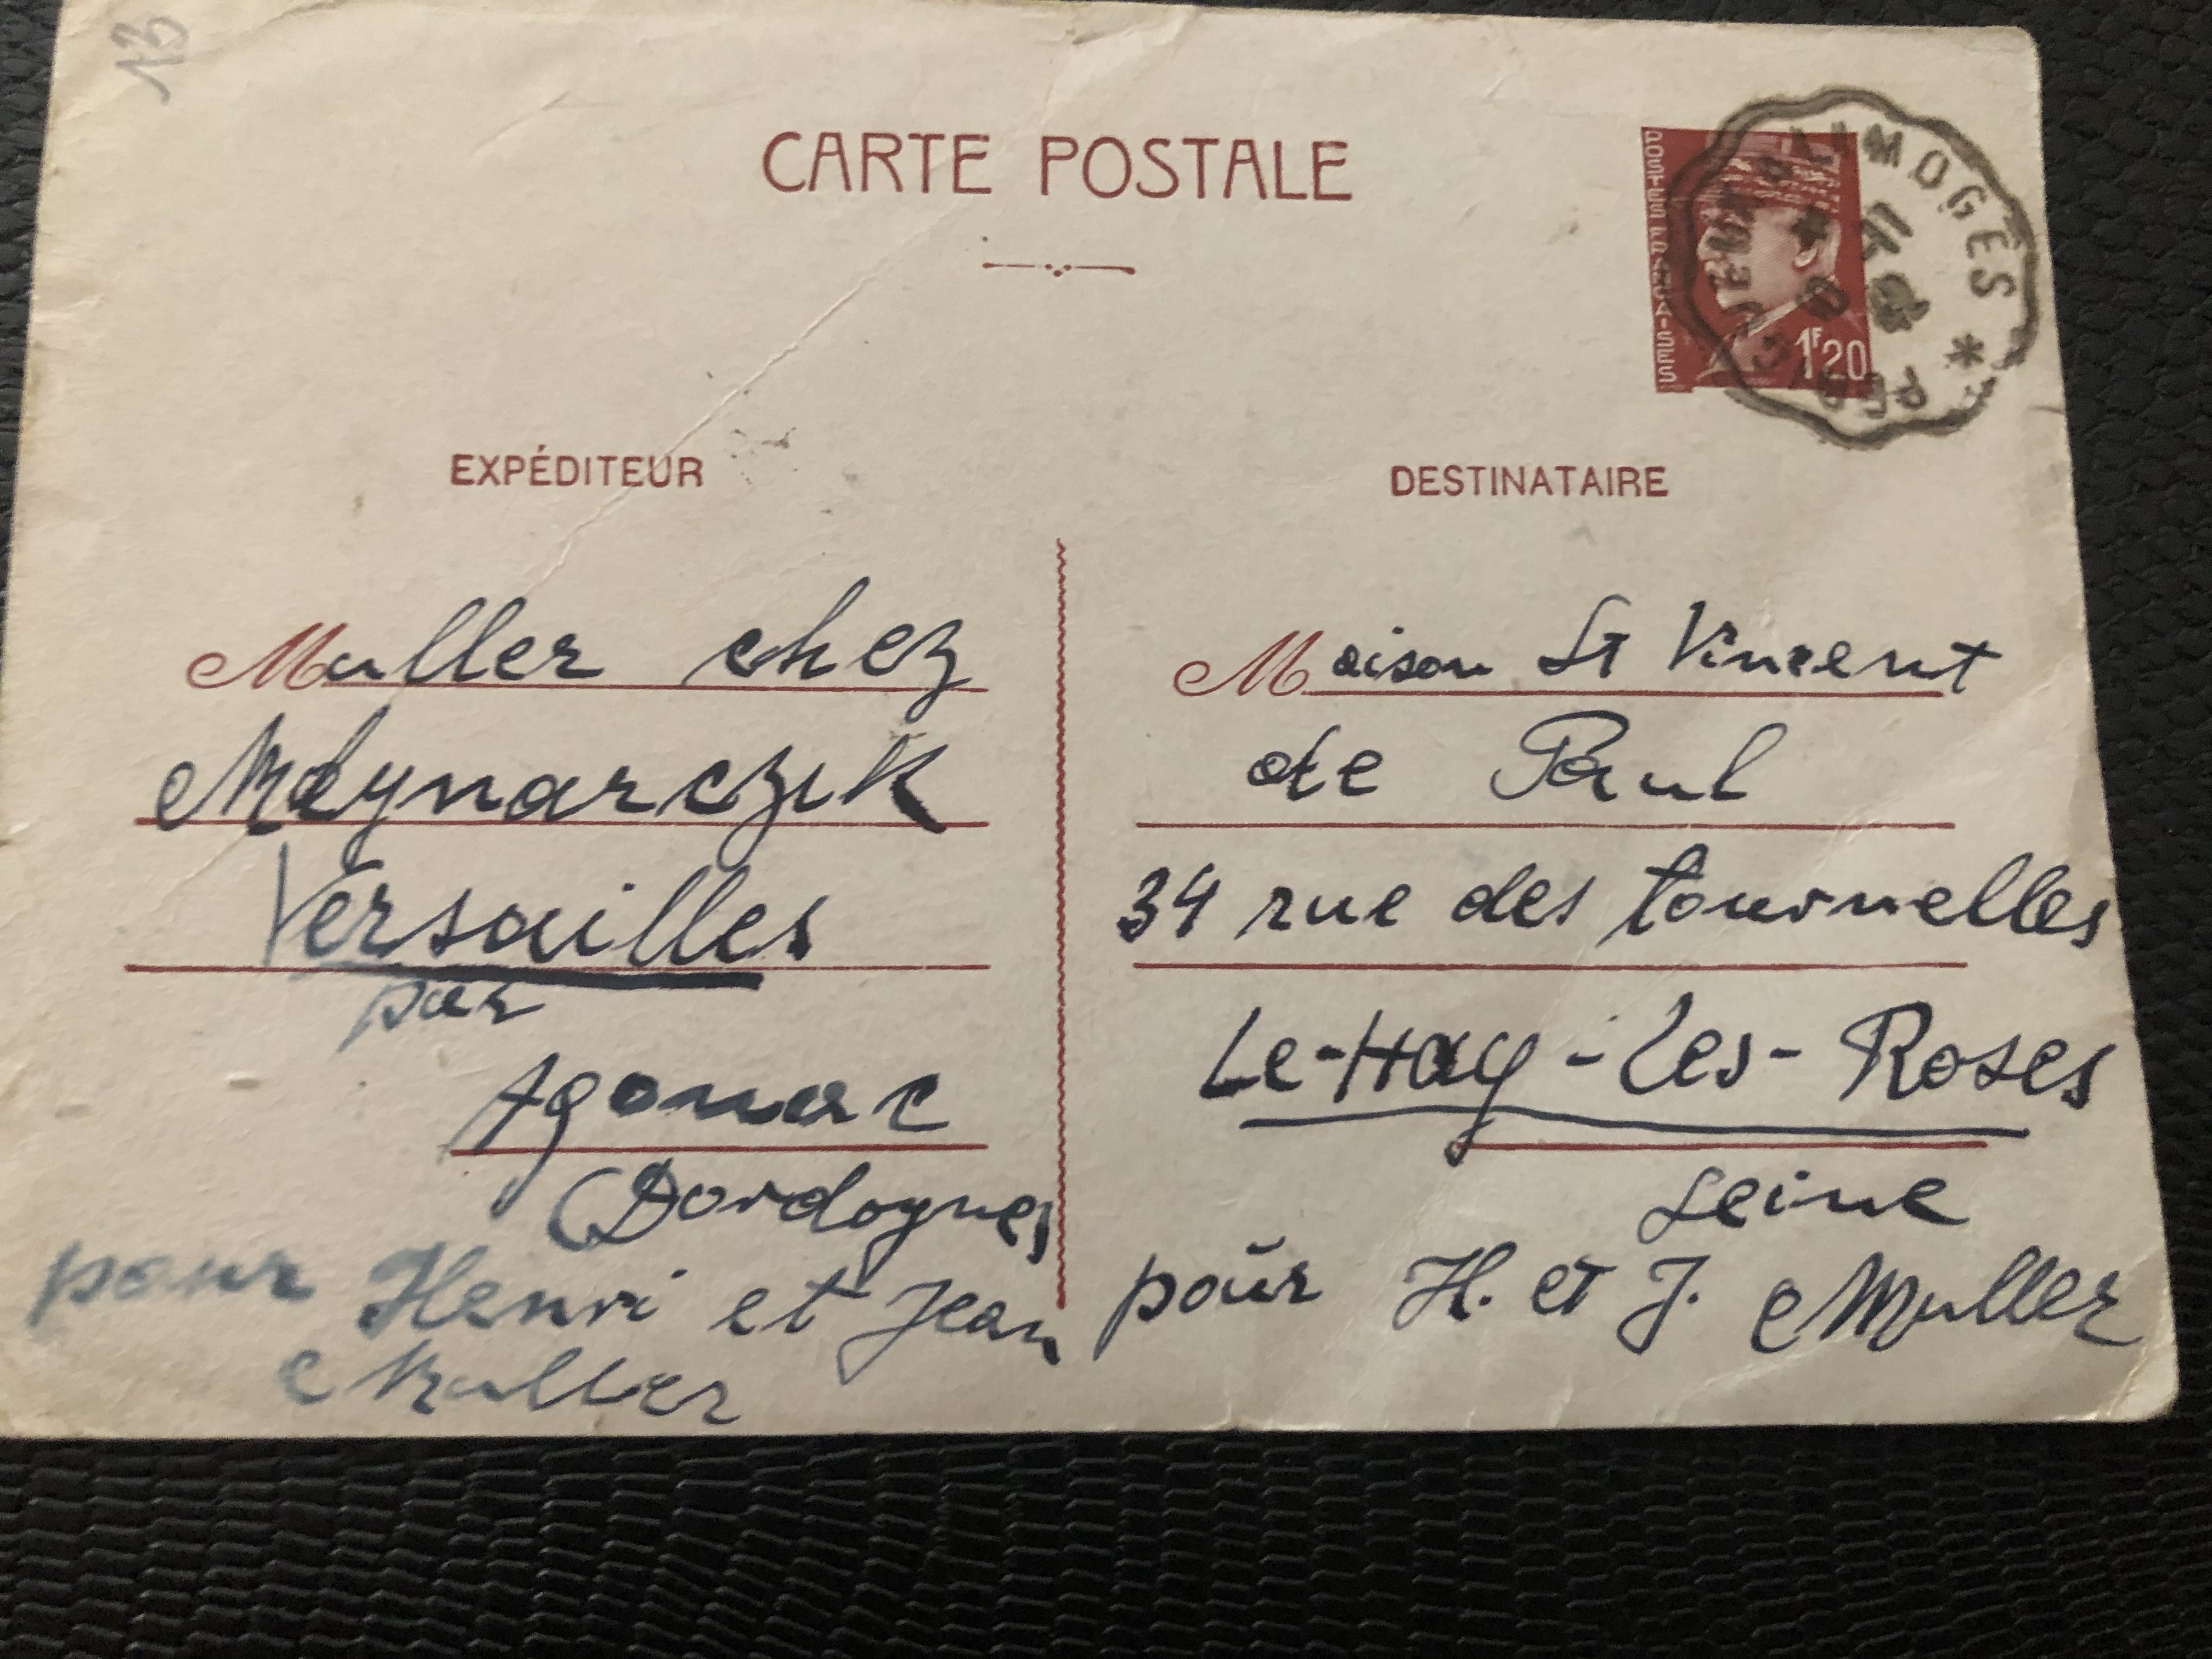 13
CARTE POSTALE
POSTES FRANÇAISES
1F20
LIMOGES *
EXPÉDITEUR
Muller chez
Mlynarczik
Versailles
par
Agonac
(Dordogne)
pour Henri et Jean
Muller
DESTINATAIRE
Maison St Vincent
de Paul
34 rue des tournelles
Le-Hay-les-Roses
Seine
pour H. et J. Muller